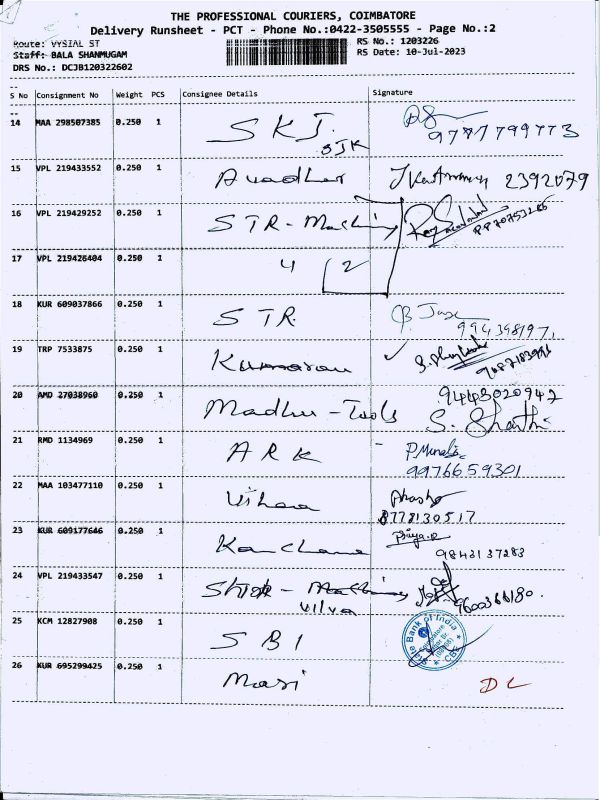 THE PROFESSIONAL COURIERS, COIMBATORE
Delivery Runsheet - PCT - Phone No.:0422-3505555 - Page No.:2
Route: VYSIAL ST
RS No.: 1203226
Staff: BALA SHANMUGAM
RS Date: 10-Jul-2023
DRS No.: DCJB120322602
S No Consignment No Weight PCS Consignee Details Signature
14 MAA 298507385 0.250 1 SKJ
15 VPL 219433552 0.250 1 2392079
16 VPL 219429252 0.250 1 STR-Machining
17 VPL 219426404 0.250 1 4 2
18 KUR 609037866 0.250 1 STR
19 TRP 7533875 0.250 1 Kumaran
20 AMD 27038960 0.250 1 Madhu-Tools 9443020947
21 RMD 1134969 0.250 1 ARK
9976659301
22 MAA 103477110 0.250 1 Vihana
8778130517
23 KUR 609177646 0.250 1 Kanchana Priya.R
9843137283
24 VPL 219433547 0.250 1
vilva
25 KCM 12827908 0.250 1 SBI State Bank of India
26 KUR 695299425 0.250 1 Masi DL